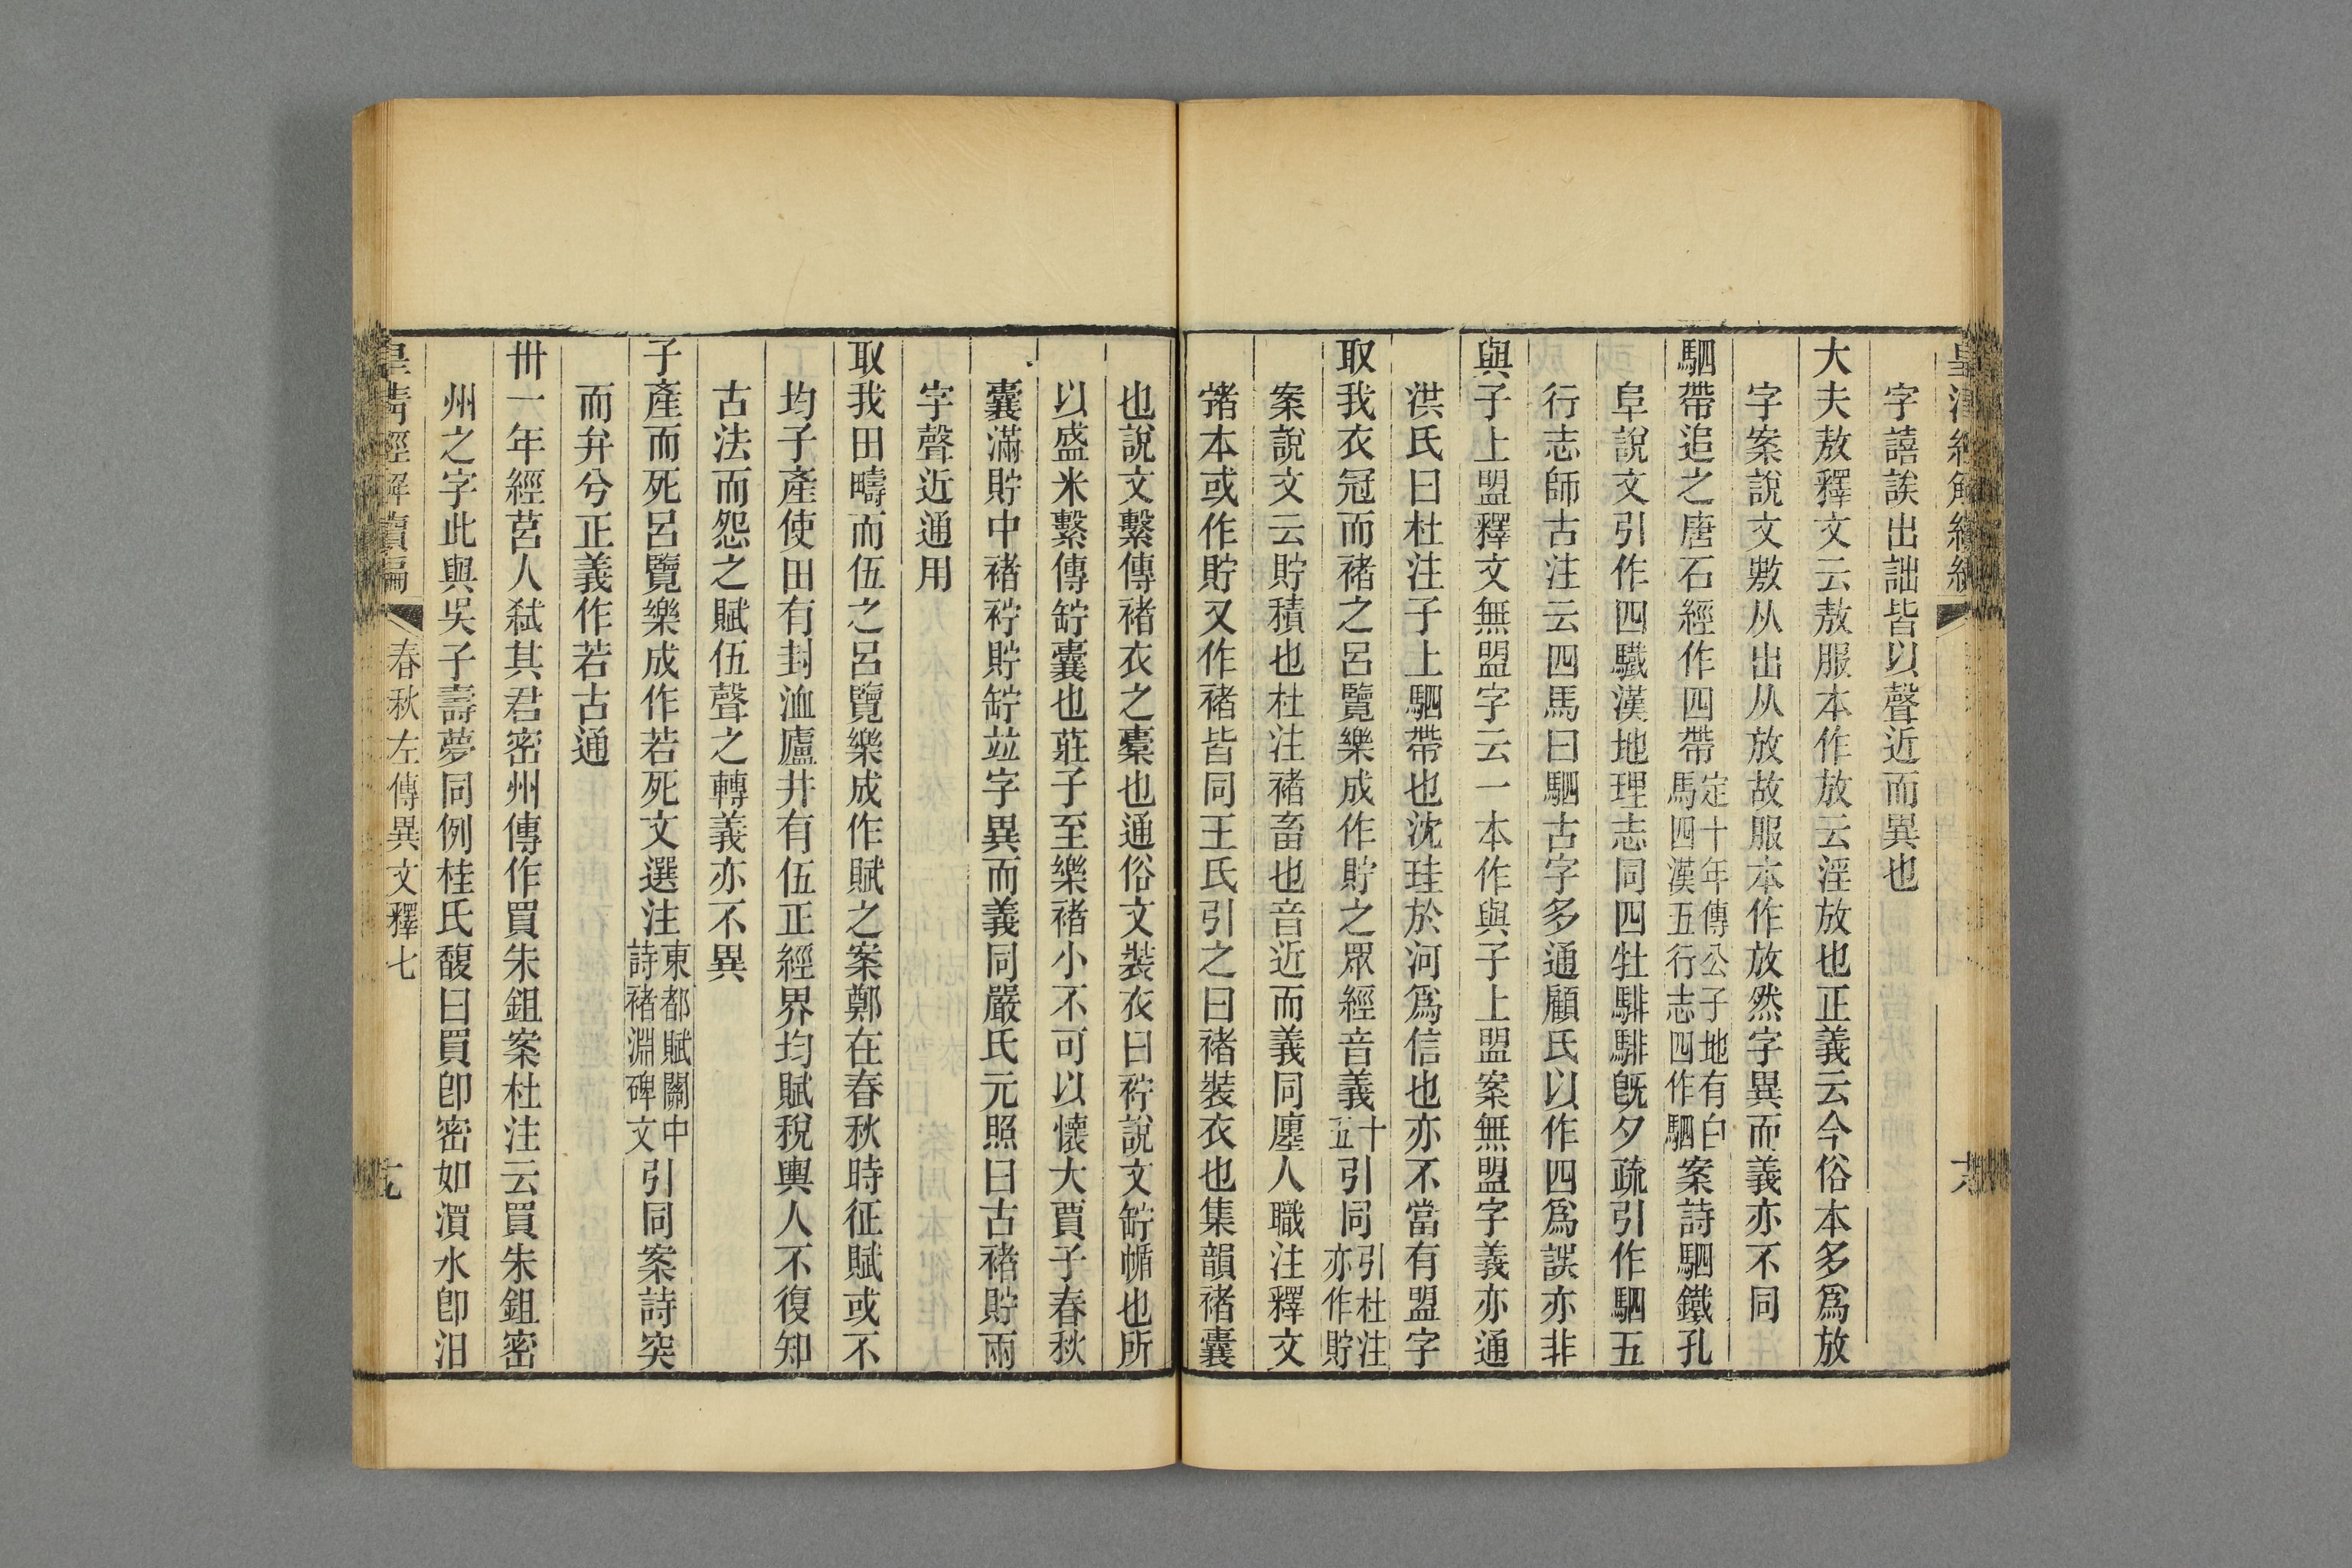 字譆誒出詘皆以聲近而異也
大夫敖釋文云敖服本作放云淫放也正義云今俗本多爲放
字案說文敖从出从放故服本作放然字異而義亦不同
駟帶追之唐石經作四帶定十年傳公子地有白馬四漢五行志四作駟案詩駟鐵孔
阜說文引作四驖漢地理志同四牡騑騑旣夕疏引作駟五
行志師古注云四馬曰駟古字多通顧氏以作四爲誤亦非
與子上盟釋文無盟字云一本作與子上盟案無盟字義亦通
洪氏曰杜注子上駟帶也沈珪於河爲信也亦不當有盟字
取我衣冠而褚之呂覽樂成作貯之眾經音義十五引同引杜注亦作貯
案說文云貯積也杜注褚畜也音近而義同廛人職注釋文
褚本或作貯又作褚皆同王氏引之曰褚裝衣也集韻褚囊
也說文繫傳褚衣之橐也通俗文裝衣曰褚說文䍆幒也所
以盛米繫傳䍆囊也莊子至樂褚小不可以懷大賈子春秋
囊滿貯中褚䘢貯䍆竝字異而義同嚴氏元照曰古褚貯兩
字聲近通用
取我田疇而伍之呂覽樂成作賦之案鄭在春秋時征賦或不
均子產使田有封洫廬井有伍正經界均賦稅輿人不復知
古法而怨之賦伍聲之轉義亦不異
子產而死呂覽樂成作若死文選注東都賦關中詩褚淵碑文引同案詩突
而弁兮正義作若古通
卅一年經莒人弒其君密州傳作買朱鉏案杜注云買朱鉏密
州之字此與吳子壽夢同例桂氏馥曰買卽密如湨水卽汨
皇淸經解續編
春秋左傳異文釋七